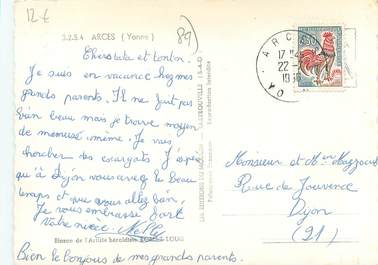 12 €
3.2.5.4 ARCES (Yonne)
89
Chers tata et tonton.
Je suis en vacance chez mes
grands parents. Il ne fait pas
bien beau mais je trouve moyen
de m'amusé même. Je vais
chercher des escargots. J'espère
qu'à Dijon vous avez le beau
temps et que vous allez bien.
Je vous embrasse fort
Votre nièce Nelly
Blason de l'Artiste héraldiste ROBERT LOUIS
Bien le bonjour de mes grands parents.
ARCES
17 H
22-
19
0,25
Monsieur et Mme
Rue de Jouvence
Dijon
(21)